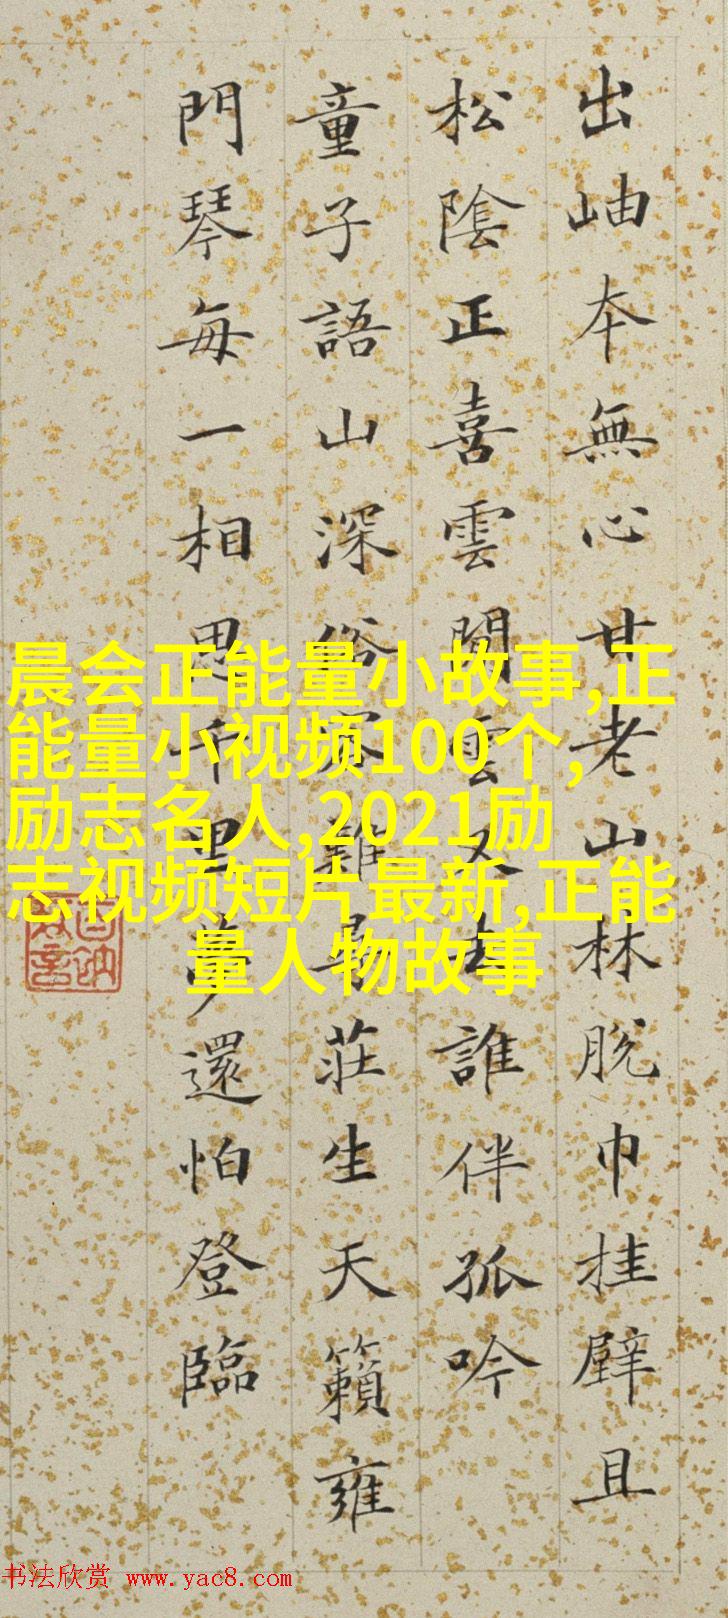 出岫本無心甘老山林脫巾挂壁且
松陰正喜雲閒雲又去誰伴孤吟
童子語山深俗客難尋莊生天籟雍
門琴每一相思千里夢還怕登臨
晨会正能量小故事,正
能量小视频100个,
励志名人,2021励
志视频短片最新,正能
量人物故事
书法欣赏 www.yac8.com